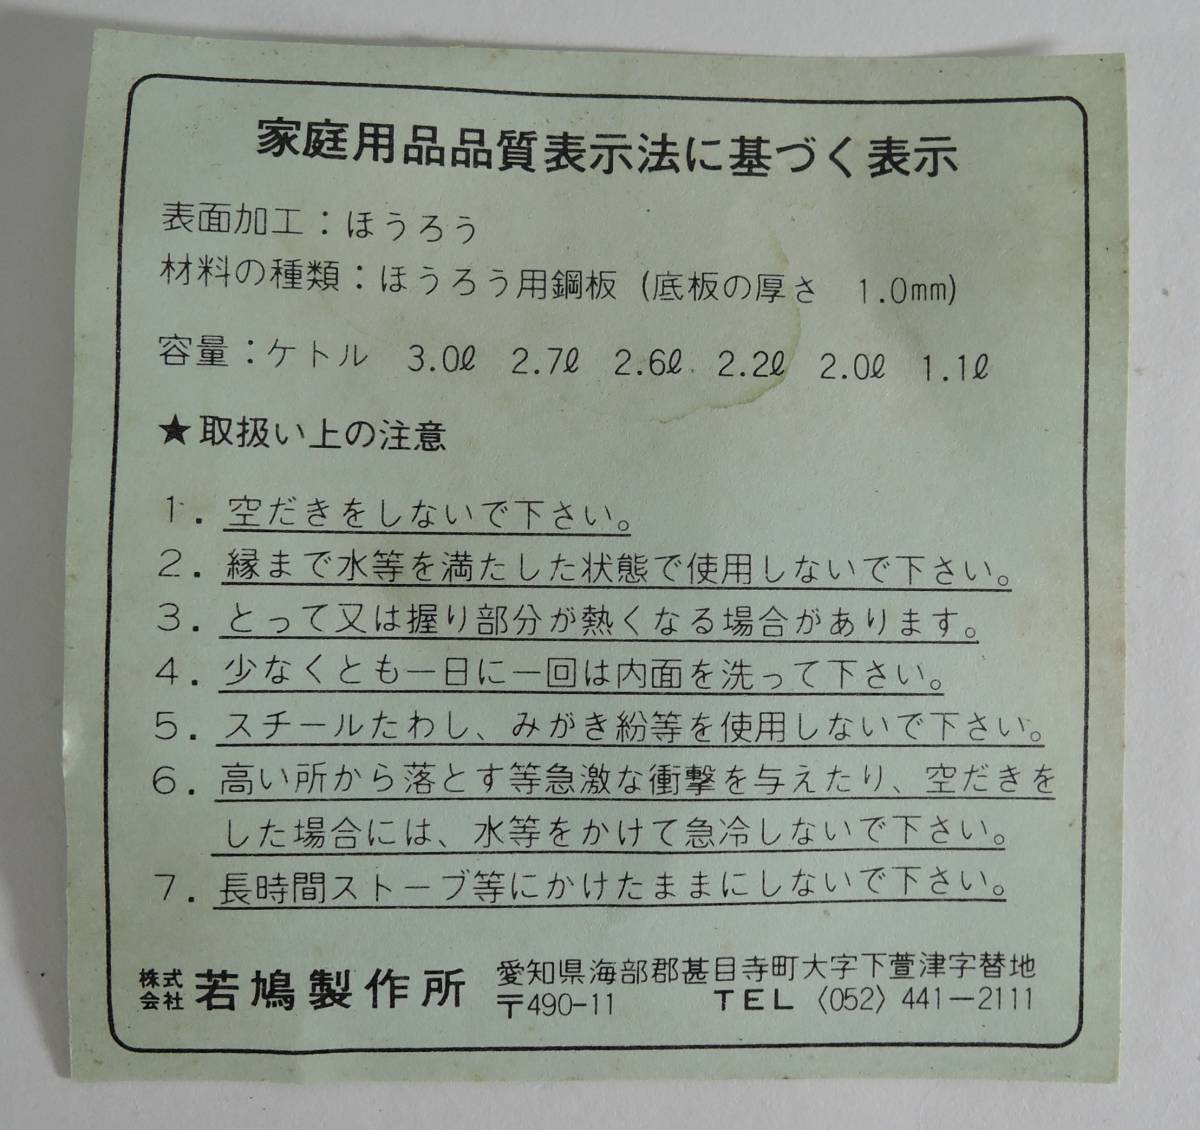 家庭用品品質表示法に基づく表示
表面加工：ほうろう
材料の種類：ほうろう用鋼板（底板の厚さ 1.0mm）
容量：ケトル 3.0ℓ 2.7ℓ 2.6ℓ 2.2ℓ 2.0ℓ 1.1ℓ
★取扱い上の注意
1. 空だきをしないで下さい。
2. 縁まで水等を満たした状態で使用しないで下さい。
3. とって又は握り部分が熱くなる場合があります。
4. 少なくとも一日に一回は内面を洗って下さい。
5. スチールたわし、みがき粉等を使用しないで下さい。
6. 高い所から落とす等急激な衝撃を与えたり、空だきを
した場合には、水等をかけて急冷しないで下さい。
7. 長時間ストーブ等にかけたままにしないで下さい。
株式会社 若鳩製作所 愛知県海部郡甚目寺町大字下萱津字替地
〒490-11 TEL〈052〉441−2111